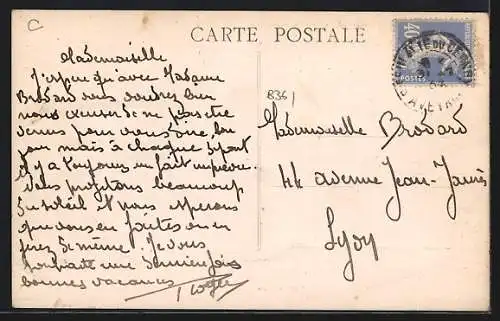 C
CARTE POSTALE
40
POSTES
B36
Mademoiselle
J'espère qu'avec Madame
Brodard vous voudrez bien
nous excuser de ne pas être
venus pour vous dire bon
jour mais à chaque
il y a toujours un fait imprévu.
Vous profitons beaucoup
du soleil et nous espérons
que vous en faites on en
de même. Je vous
souhaite une dernière fois
bonnes vacances
Roger
Mademoiselle Brodard
44 avenue Jean-Jaurès
Lyon